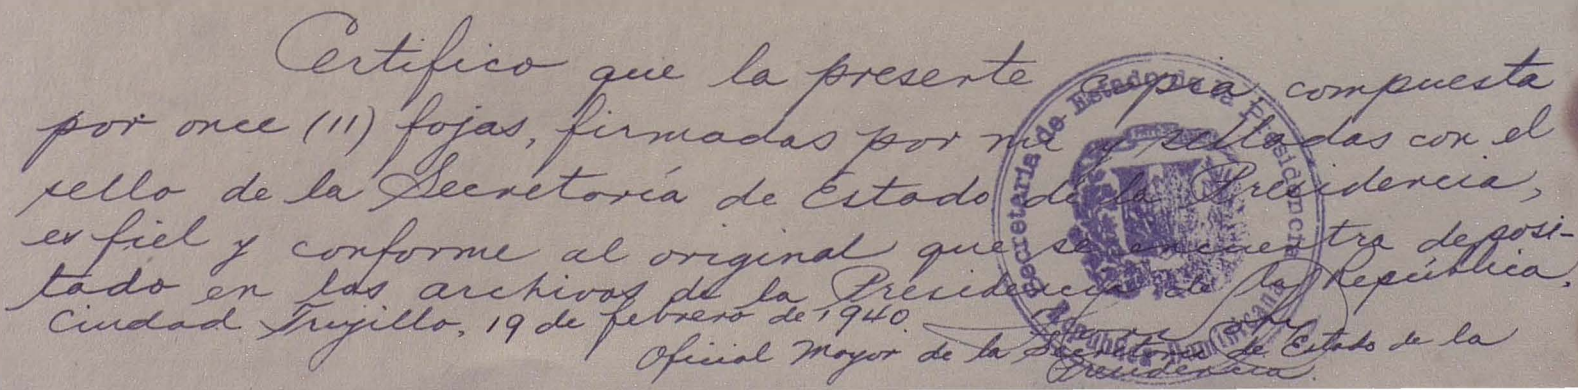 Certifico que la presente copia compuesta
por once (11) fojas, firmadas por mí y selladas con el
sello de la Secretaría de Estado de la Presidencia,
es fiel y conforme al original que se encuentra deposi-
tado en los archivos de la Presidencia de la República.
Ciudad Trujillo, 19 de febrero de 1940.
Oficial Mayor de la Secretaría de Estado de la
Presidencia.
Secretaria de Estado de la Presidencia
Republica Dominicana